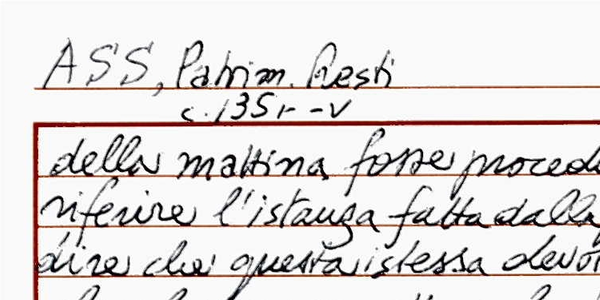 ASS, Patrim. Resti
c. 135r-v
della mattina fosse proced
riferire l'istanza fatta dalla
dire che questa istessa devo